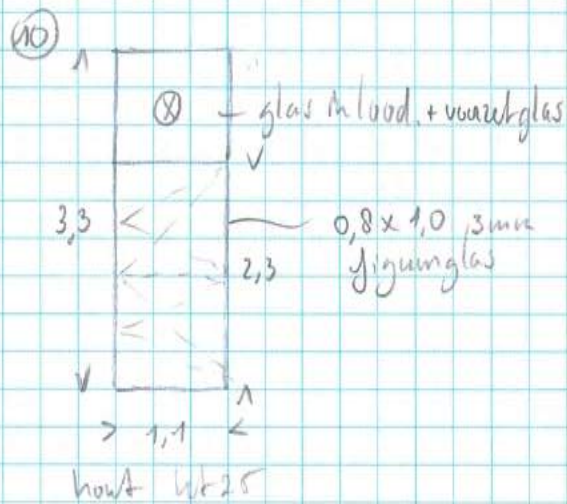 10
glas in lood. + voorzetglas
3,3
0,8 x 1,0 3mm
2,3
figuurglas
1,1
hout